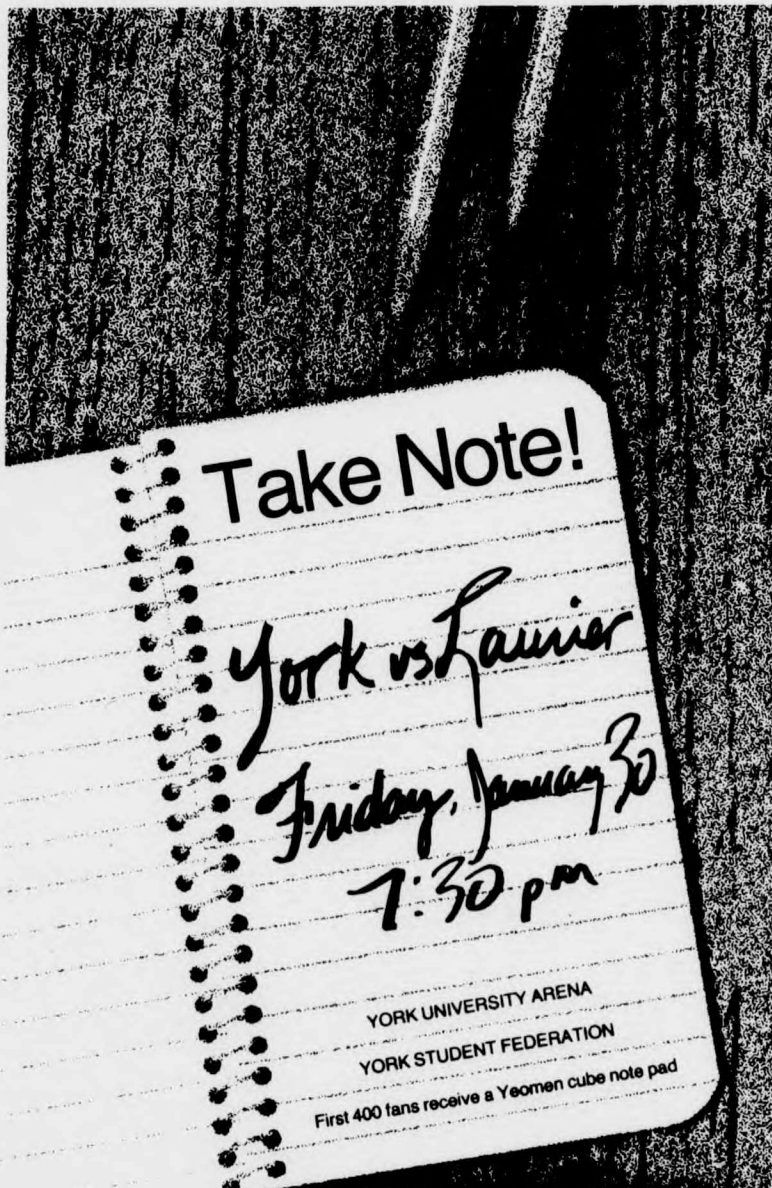 Take Note!
York vs Laurier
Friday, January 30
7:30 pm
YORK UNIVERSITY ARENA
YORK STUDENT FEDERATION
First 400 fans receive a Yeomen cube note pad